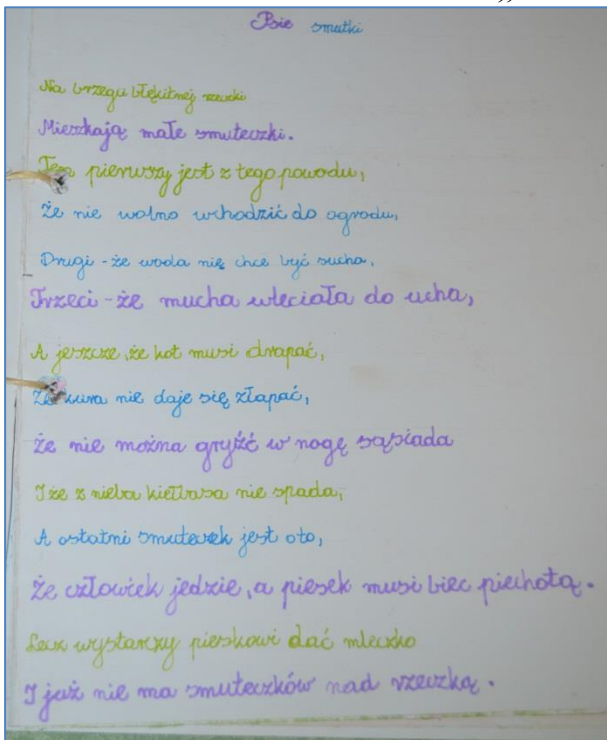 Psie smutki
Na brzegu błękitnej rzeczki
Mieszkają małe smuteczki.
Ten pierwszy jest z tego powodu,
Że nie wolno wchodzić do ogrodu,
Drugi - że woda nie chce być sucha,
Trzeci - że mucha wleciała do ucha,
A jeszcze, że kot musi drapać,
Że kura nie daje się złapać,
Że nie można gryźć w nogę sąsiada
I że z nieba kiełbasa nie spada,
A ostatni smuteczek jest oto,
Że człowiek jedzie, a piesek musi biec piechotą.
Lecz wystarczy pieskowi dać mleczko
I już nie ma smuteczków nad rzeczką.